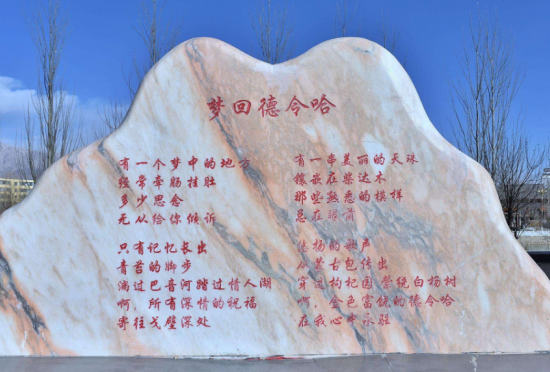 梦回德令哈
有一个梦中的地方
经常牵肠挂肚
多少思念
无从给你倾诉
只有记忆长出
青苔的脚步
淌过巴音河踏过情人湖
啊，所有深情的祝福
寄往戈壁深处
有一串美丽的天珠
镶嵌在柴达木
那些熟悉的模样
总在眼前
悠扬的歌声
从蒙古包传出
穿过枸杞园萦绕白杨树
啊，金色富饶的德令哈
在我心中永驻